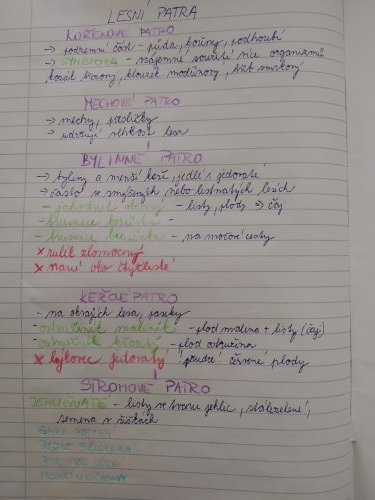 LESNÍ PATRA
KOŘENOVÉ PATRO
→ podzemní část - půda, kořeny, podhoubí
→ SYMBIÓZA - vzájemné soužití více organismů
kozák březový, klouzek modřínový, hřib smrkový
MECHOVÉ PATRO
→ mechy, plavuňky
→ udržují vlhkost lesa
BYLINNÉ PATRO
→ byliny a menší keře, jedlé i jedovaté
→ často ve smíšených nebo listnatých lesích
- jahodník obecný - listy, plody → čaj
- borůvka -
- brusnice brusinka - na močové cesty
x rulík zlomocný
x vraní oko čtyřlisté
KEŘOVÉ PATRO
- na okrajích lesa, paseky
- ostružiník maliník - plod malina + listy (čaj)
- ostružiník křovitý - plod ostružina
x lýkovec jedovatý červené plody
STROMOVÉ PATRO
JEHLIČNATÉ - listy ve tvaru jehlic, stálezelené,
semena v šiškách
SMRK ZTEPILÝ
JEDLE BĚLOKORÁ
BOROVICE LESNÍ
MODŘÍN OPADAVÝ